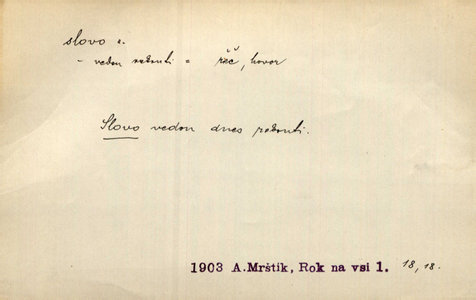 slovo s.
- vedou rekruti o řeč, hovor
Slovo vedou dnes rekruti.
1903 A.Mrštík, Rok na vsi 1. 18,18.